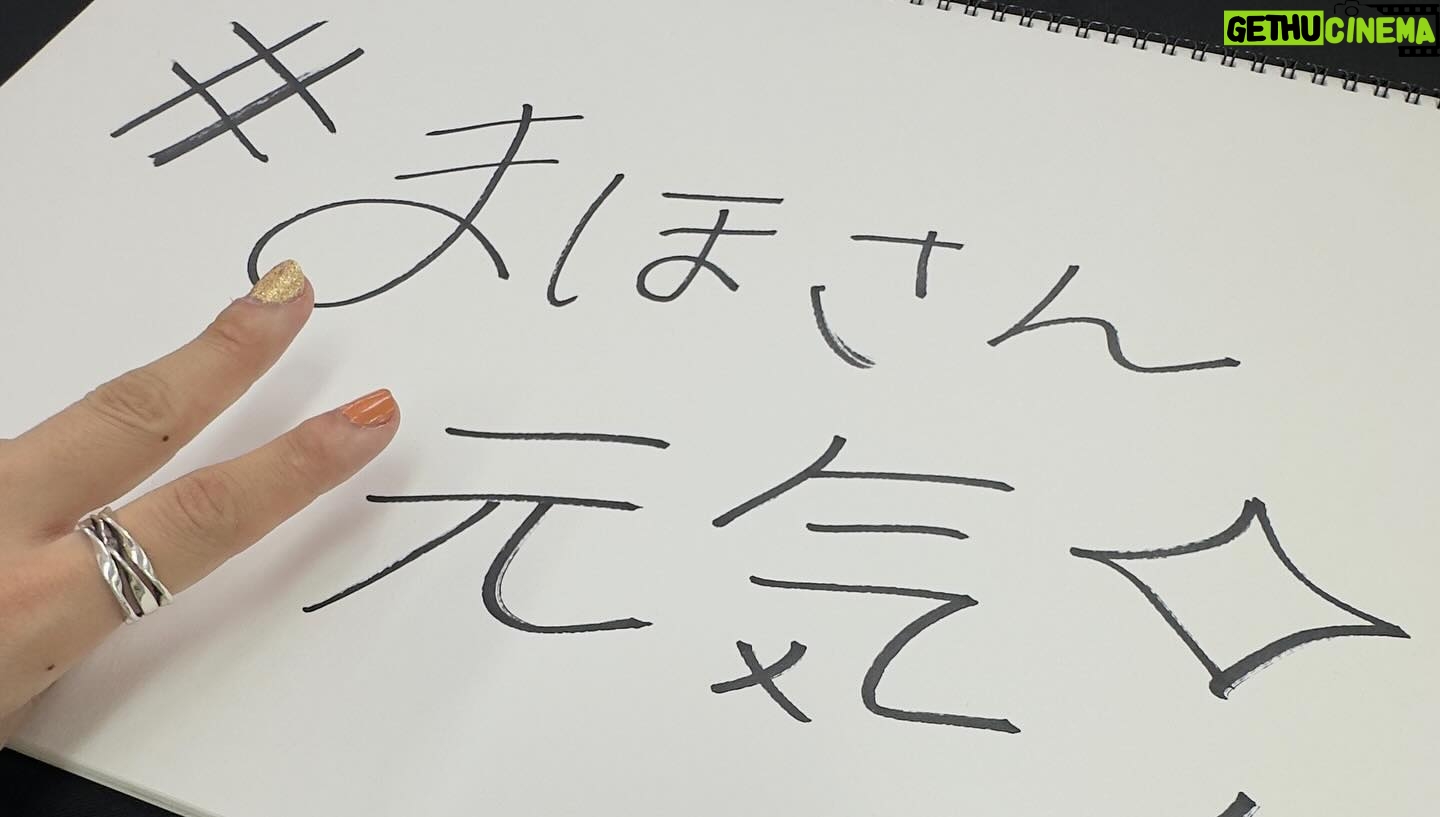 GETHUCINEMA
#まほさん
元気